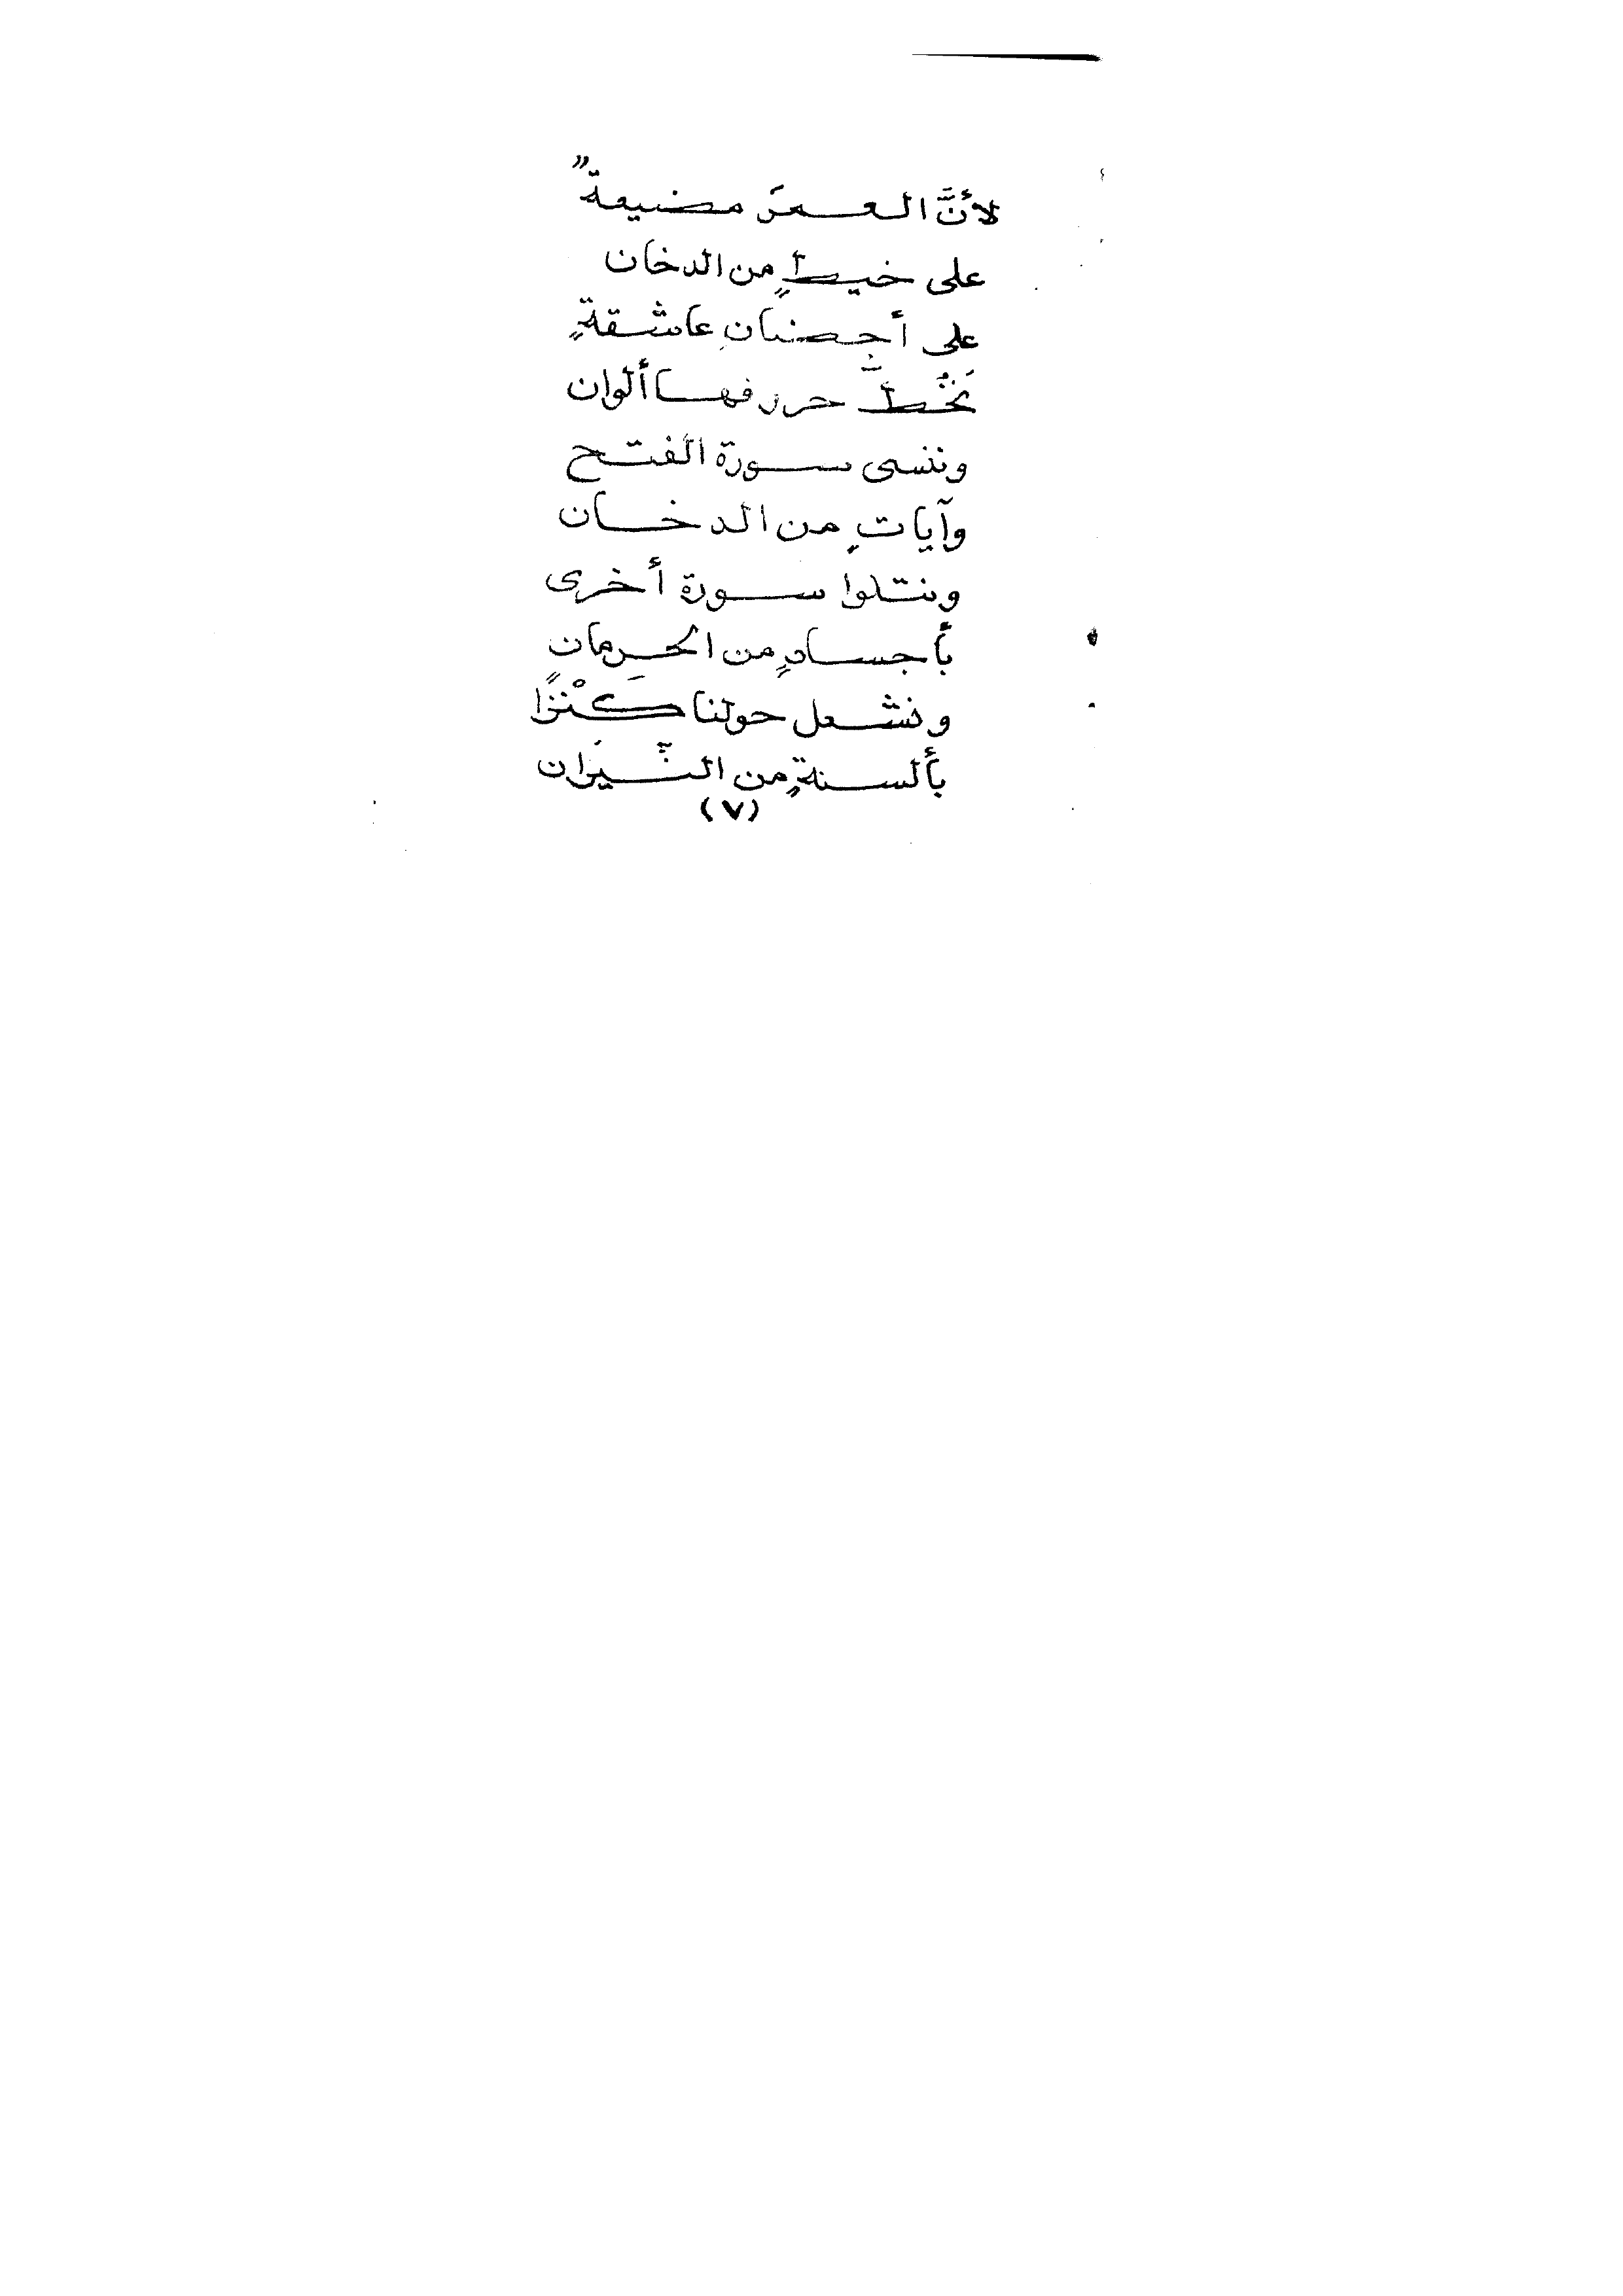 لأنَّ العمرَ مضيعةً
على خيطٍ من الدخان
على أحضانِ عاشقةٍ
نَخُطُّ حروفها ألوان
وننسى سورة الفتح
وآياتٍ من الدخان
ونتلوا سورة أخرى
بأجسادٍ من الحرمان
ونشعل حولنا كَنْزًا
بألسنةٍ من النِّيَران
(٧)